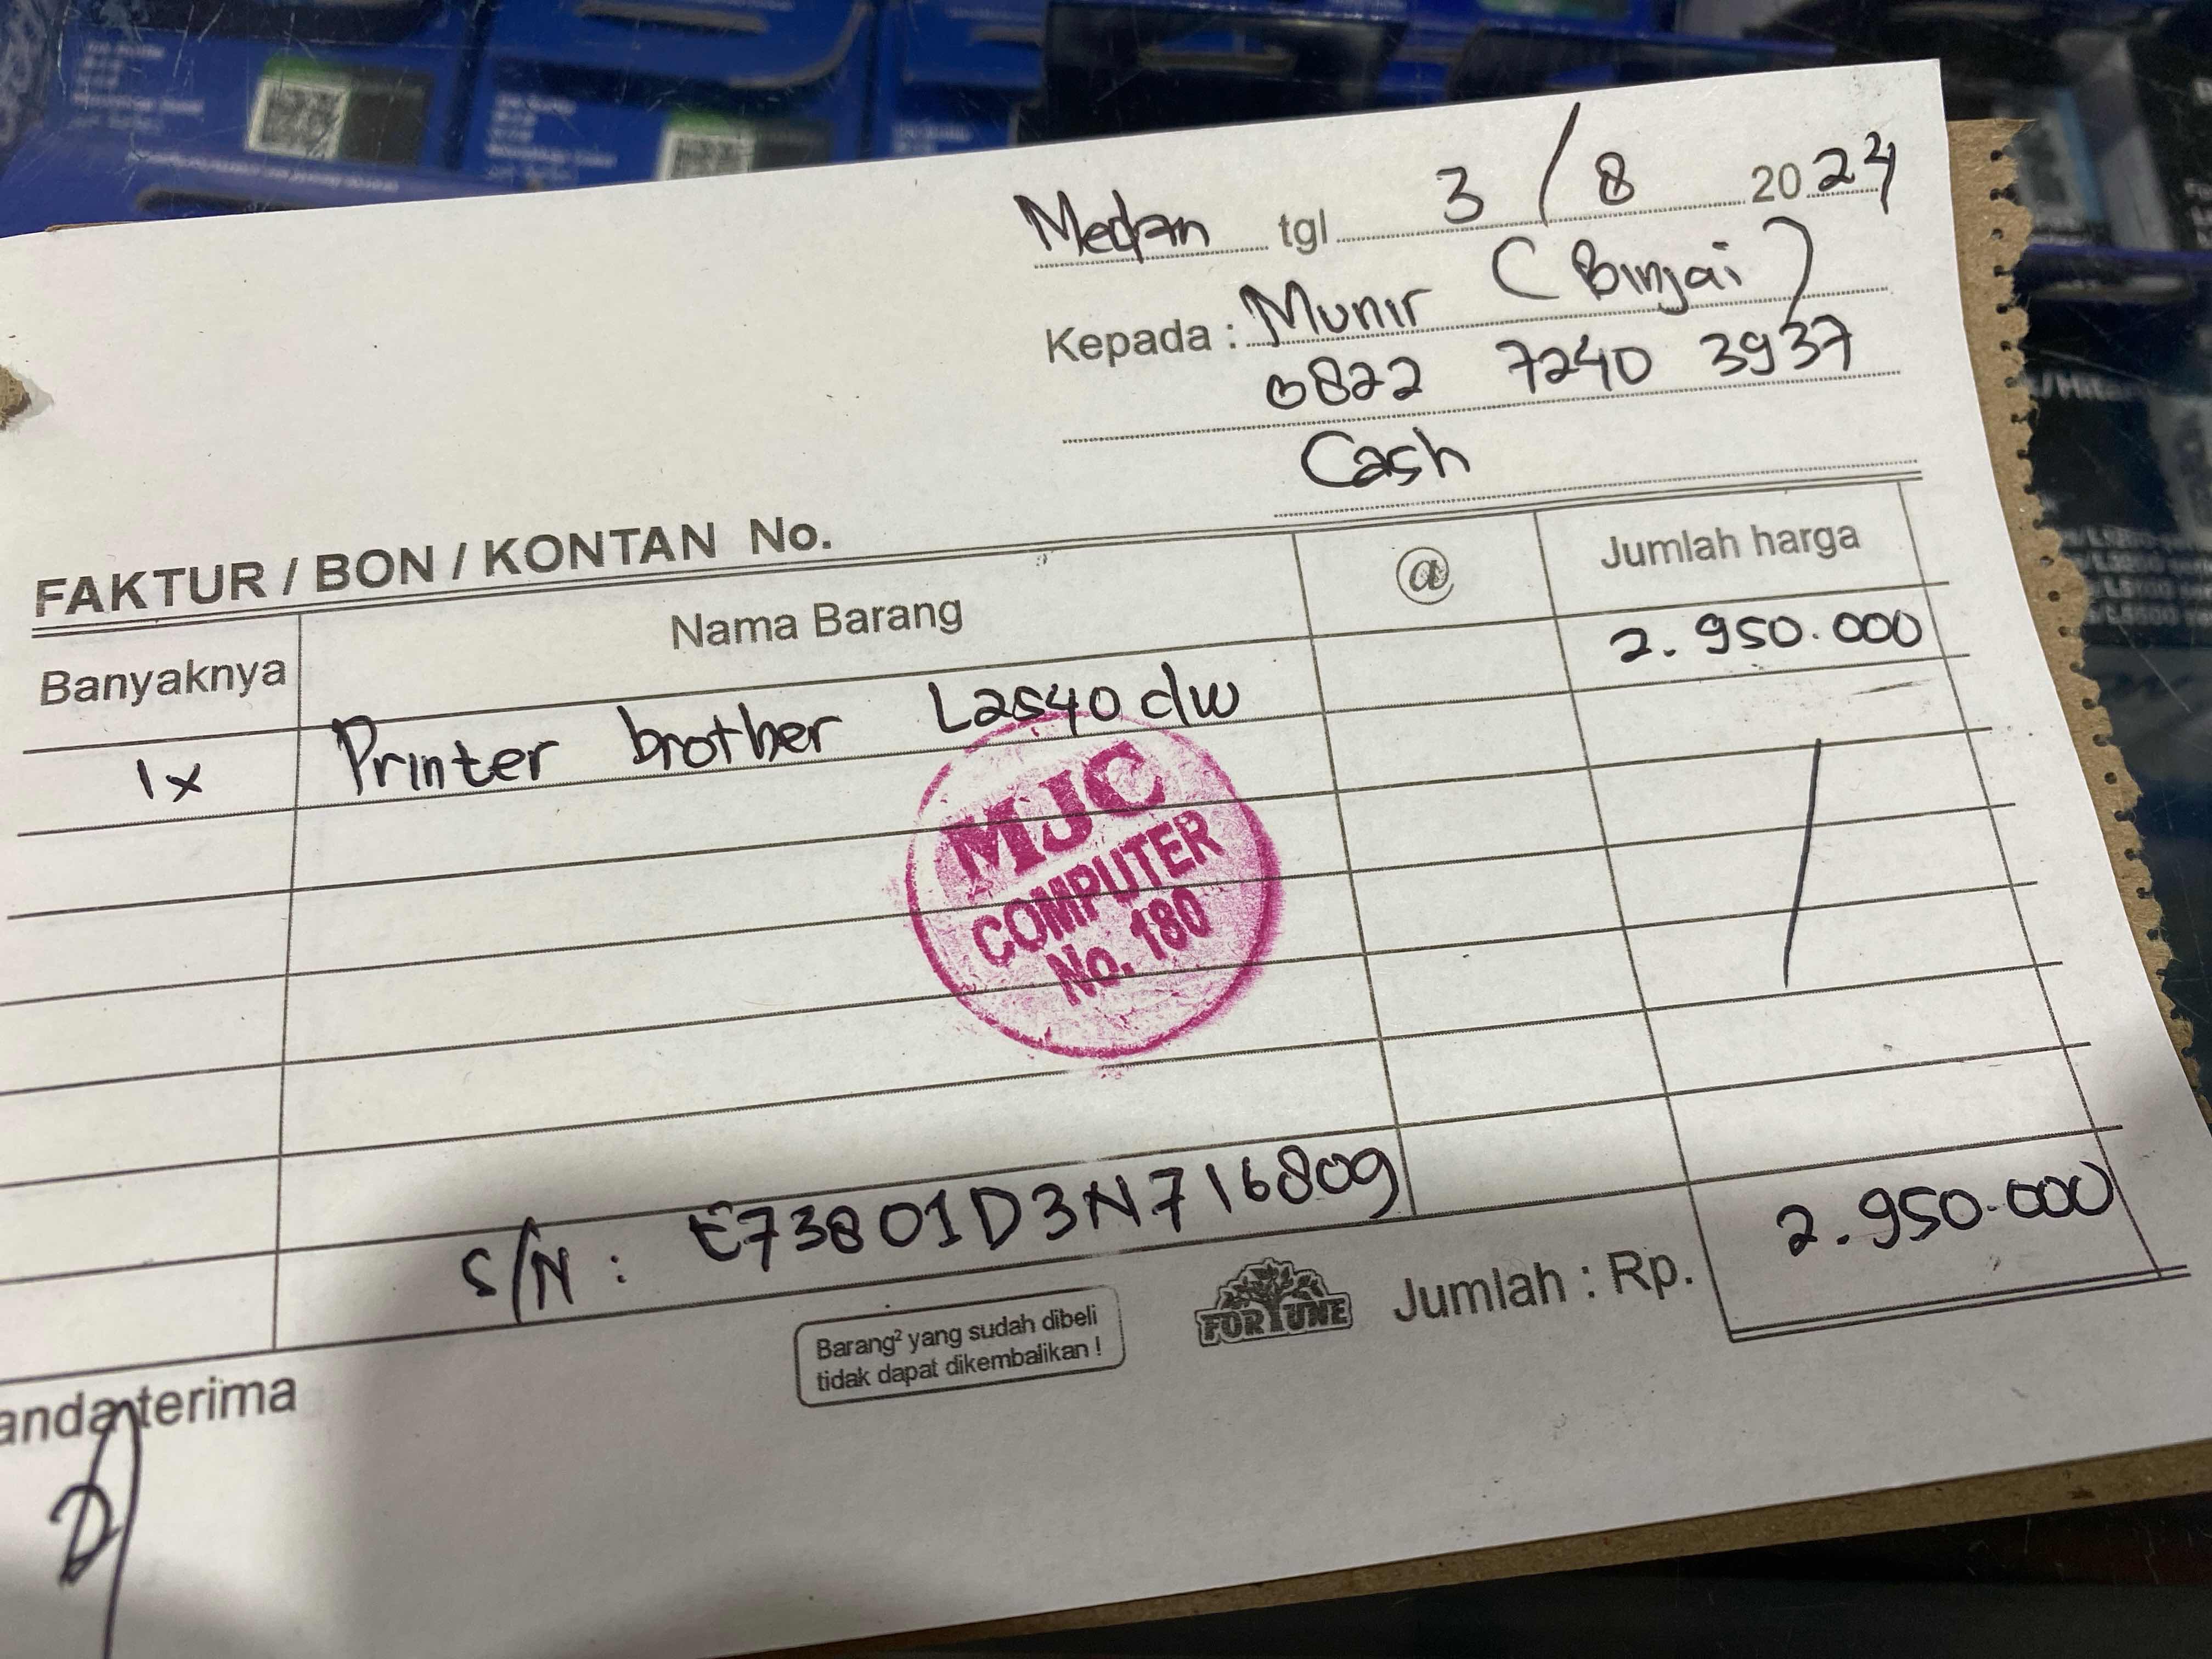 Medan tgl 3 / 8 2024
Kepada : Munir (Binjai)
0822 7240 3937
Cash
FAKTUR / BON / KONTAN No.
Banyaknya Nama Barang @ Jumlah harga
1x Printer brother L2540dw 2.950.000
MJC
COMPUTER
No. 180
S/N : E73801D3N716809
Jumlah : Rp. 2.950.000
FORTUNE
Barang² yang sudah dibeli
tidak dapat dikembalikan !
anda terima